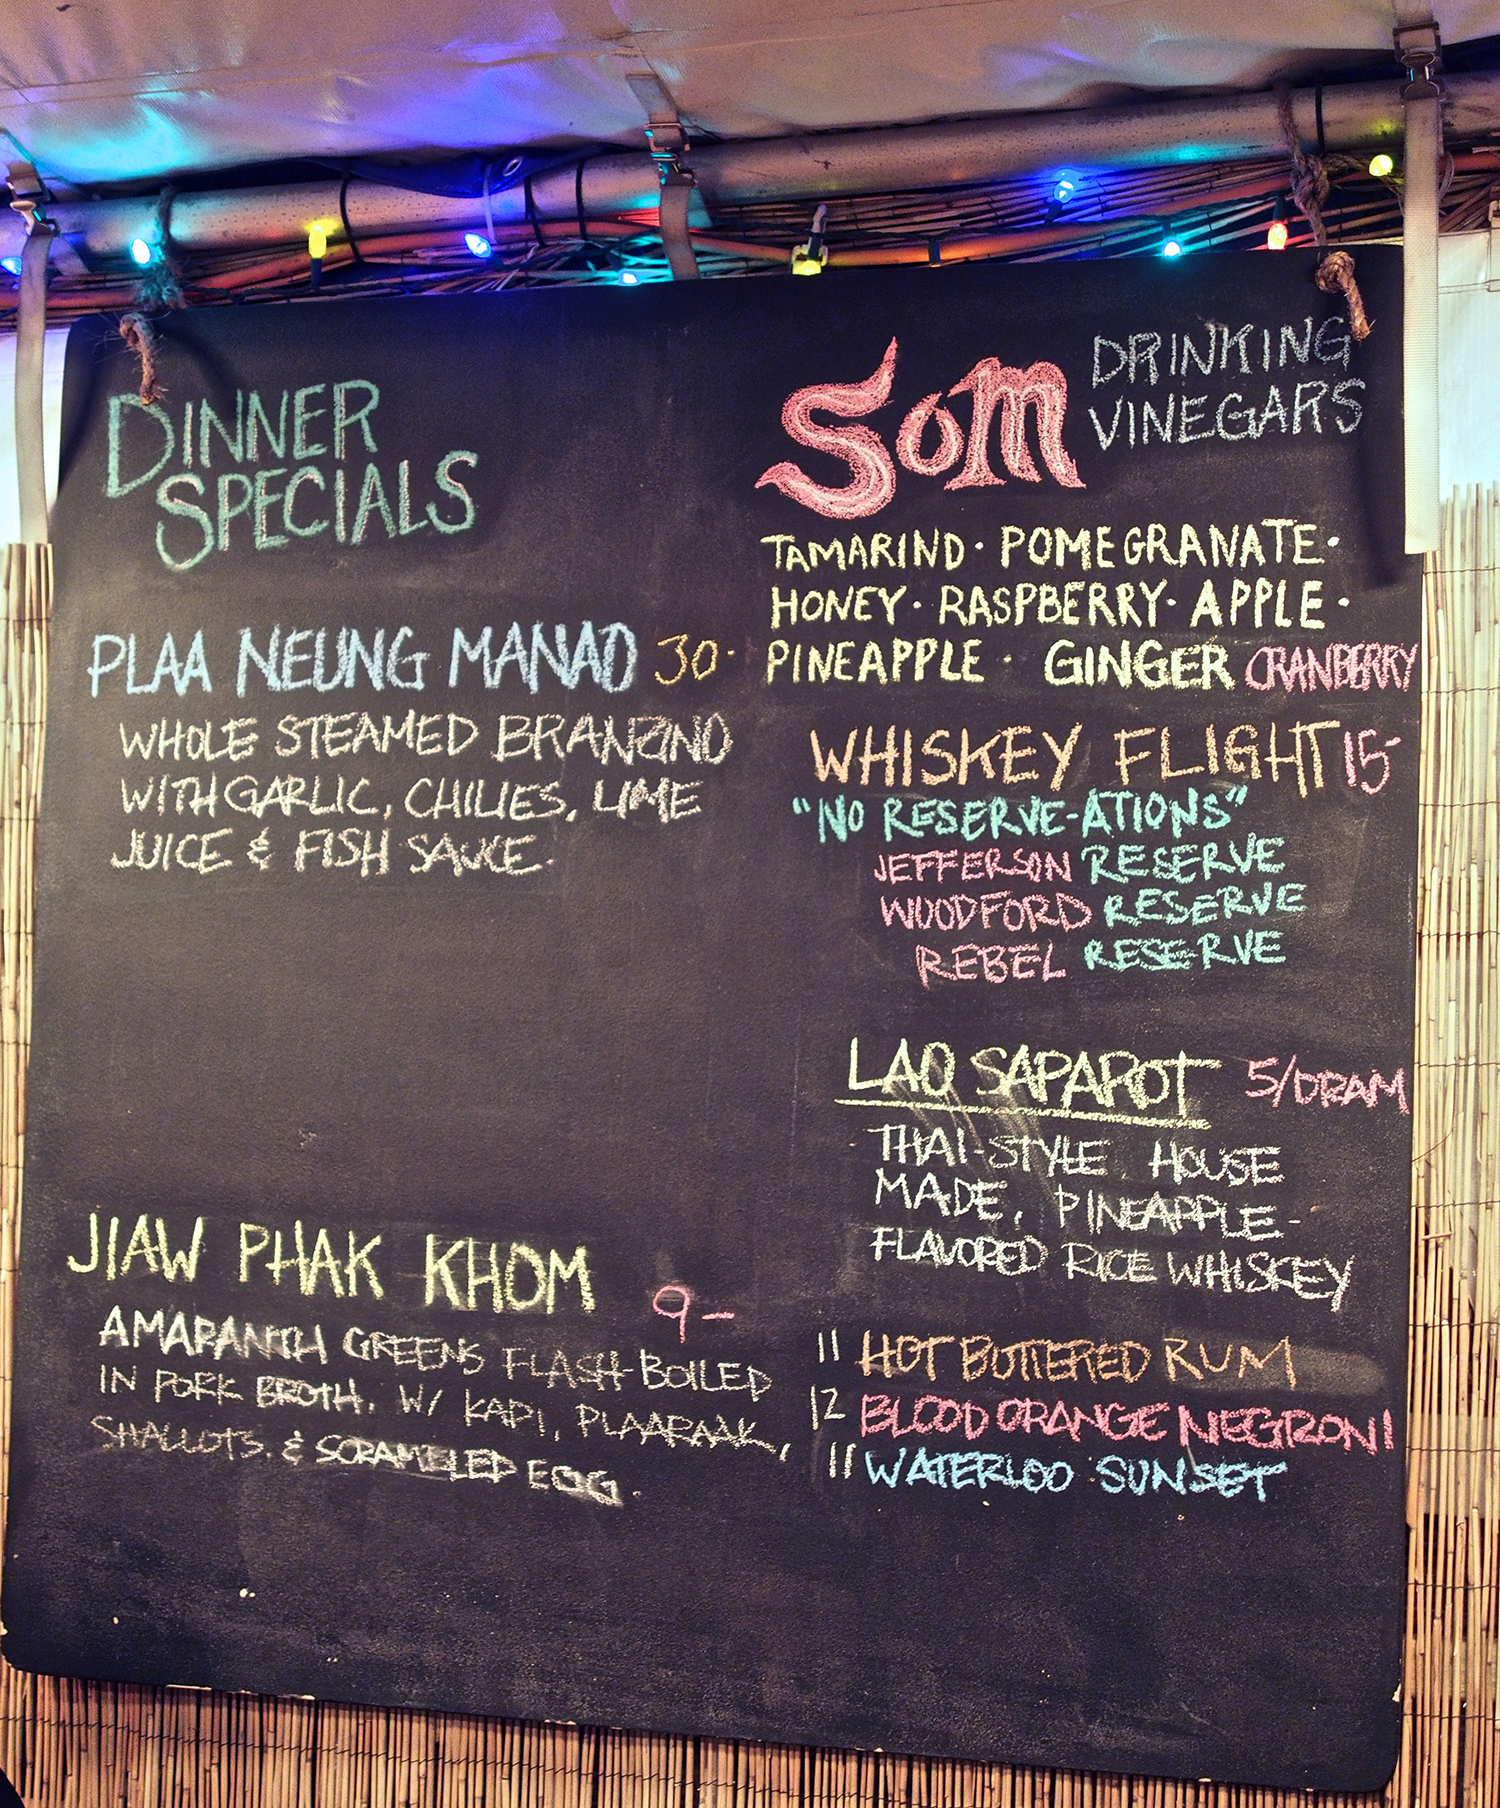 DINNER
SPECIALS
PLAA NEUNG MANAO 30-
WHOLE STEAMED BRANZINO
WITH GARLIC, CHILIES, LIME
JUICE & FISH SAUCE.
JIAW PHAK KHOM
9-
AMARANTH GREENS FLASH-BOILED
IN PORK BROTH. W/ KAPI, PLAARAAK,
SHALLOTS. & SCRAMBLED EGG.
SOM DRINKING
VINEGARS
TAMARIND · POMEGRANATE ·
HONEY · RASPBERRY · APPLE ·
PINEAPPLE · GINGER CRANBERRY
WHISKEY FLIGHT 15-
"NO RESERVE-ATIONS"
JEFFERSON RESERVE
WOODFORD RESERVE
REBEL RESERVE
LAO SAPAROT 5/DRAM
THAI-STYLE HOUSE
MADE, PINEAPPLE-
FLAVORED RICE WHISKEY
11 HOT BUTTERED RUM
12 BLOOD ORANGE NEGRONI
11 WATERLOO SUNSET